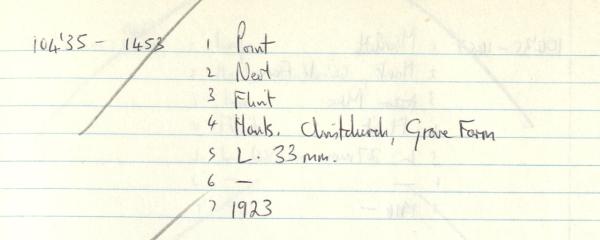 104'35 - 1453 1 Point
2 Neol
3 Flint
4 Hants. Christchurch, Grove Farm
5 L. 33 mm.
6 —
7 1923